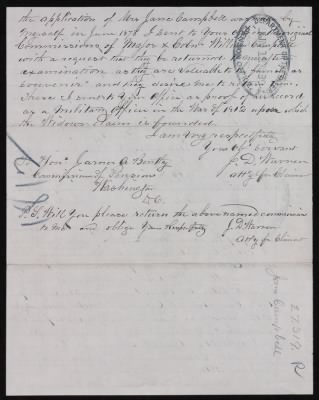 the application of Mrs Jane Campbell was by
myself in June 1878 I sent to your Office original
Commissions of Major & Coln William Campbell
with a request that they be returned
examination as they are valuable to the family as
souvenir and they desire me to
These I sent to your Office as proof of his record
as a Military Officer in the War of 1812 upon which
the Widows Claim is founded.
I am very respectfully
Your Obt Servant
J. D. Warner
atty for Claimt
Hon. James A. Bently
Commissioner of Pensions
Washington
D.C.
P. S. Will you please return the above named commission
to me and oblige Yours Respectfully
J. D. Warner
atty for Claimt
Jane Campbell